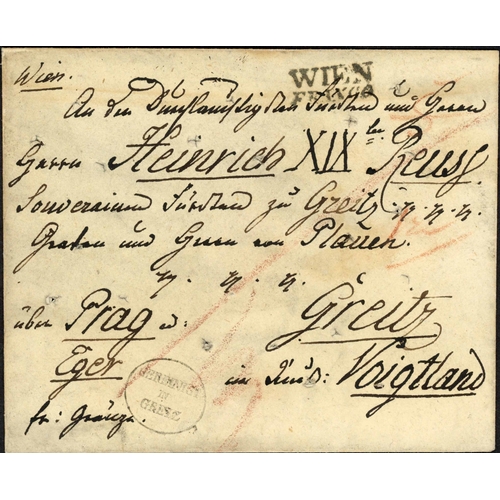 Wien.
WIEN
FRANCO
An den Durchlauchtigsten Fürsten und Herrn
Herrn Heinrich XIX ten Reuss
Souverainen Fürsten zu Greitz
Grafen und Herrn von Plauen.
Greitz
über Prag u:
Eger
im Reuß: Voigtland
fr: Gränze.
IN
GREIZ